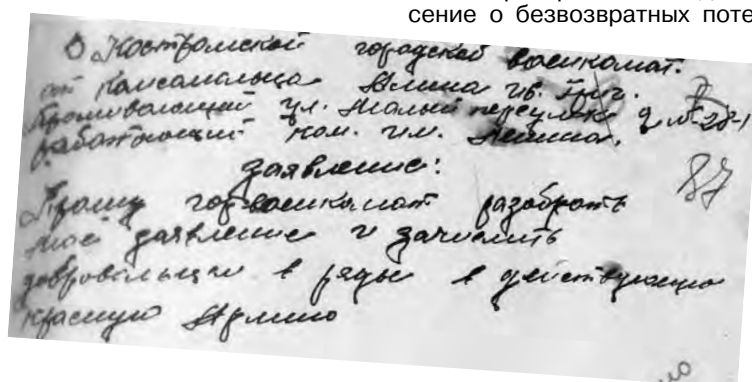 сение о безвозвратных поте
В Костромской городской военкомат.
от комсамольца
Проживающий ул. Малый переулок
работающий ком. им. Ленина.
87
заявление:
Прошу горвоенкомат разобрать
мое заявление и зачислить
добровольцем в ряды в действующую
красную Армию